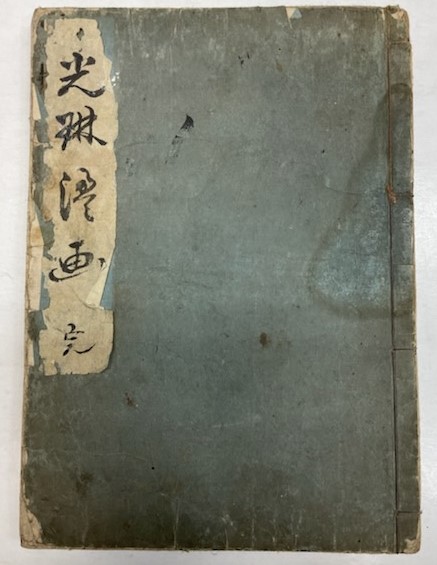 光琳漫画 完